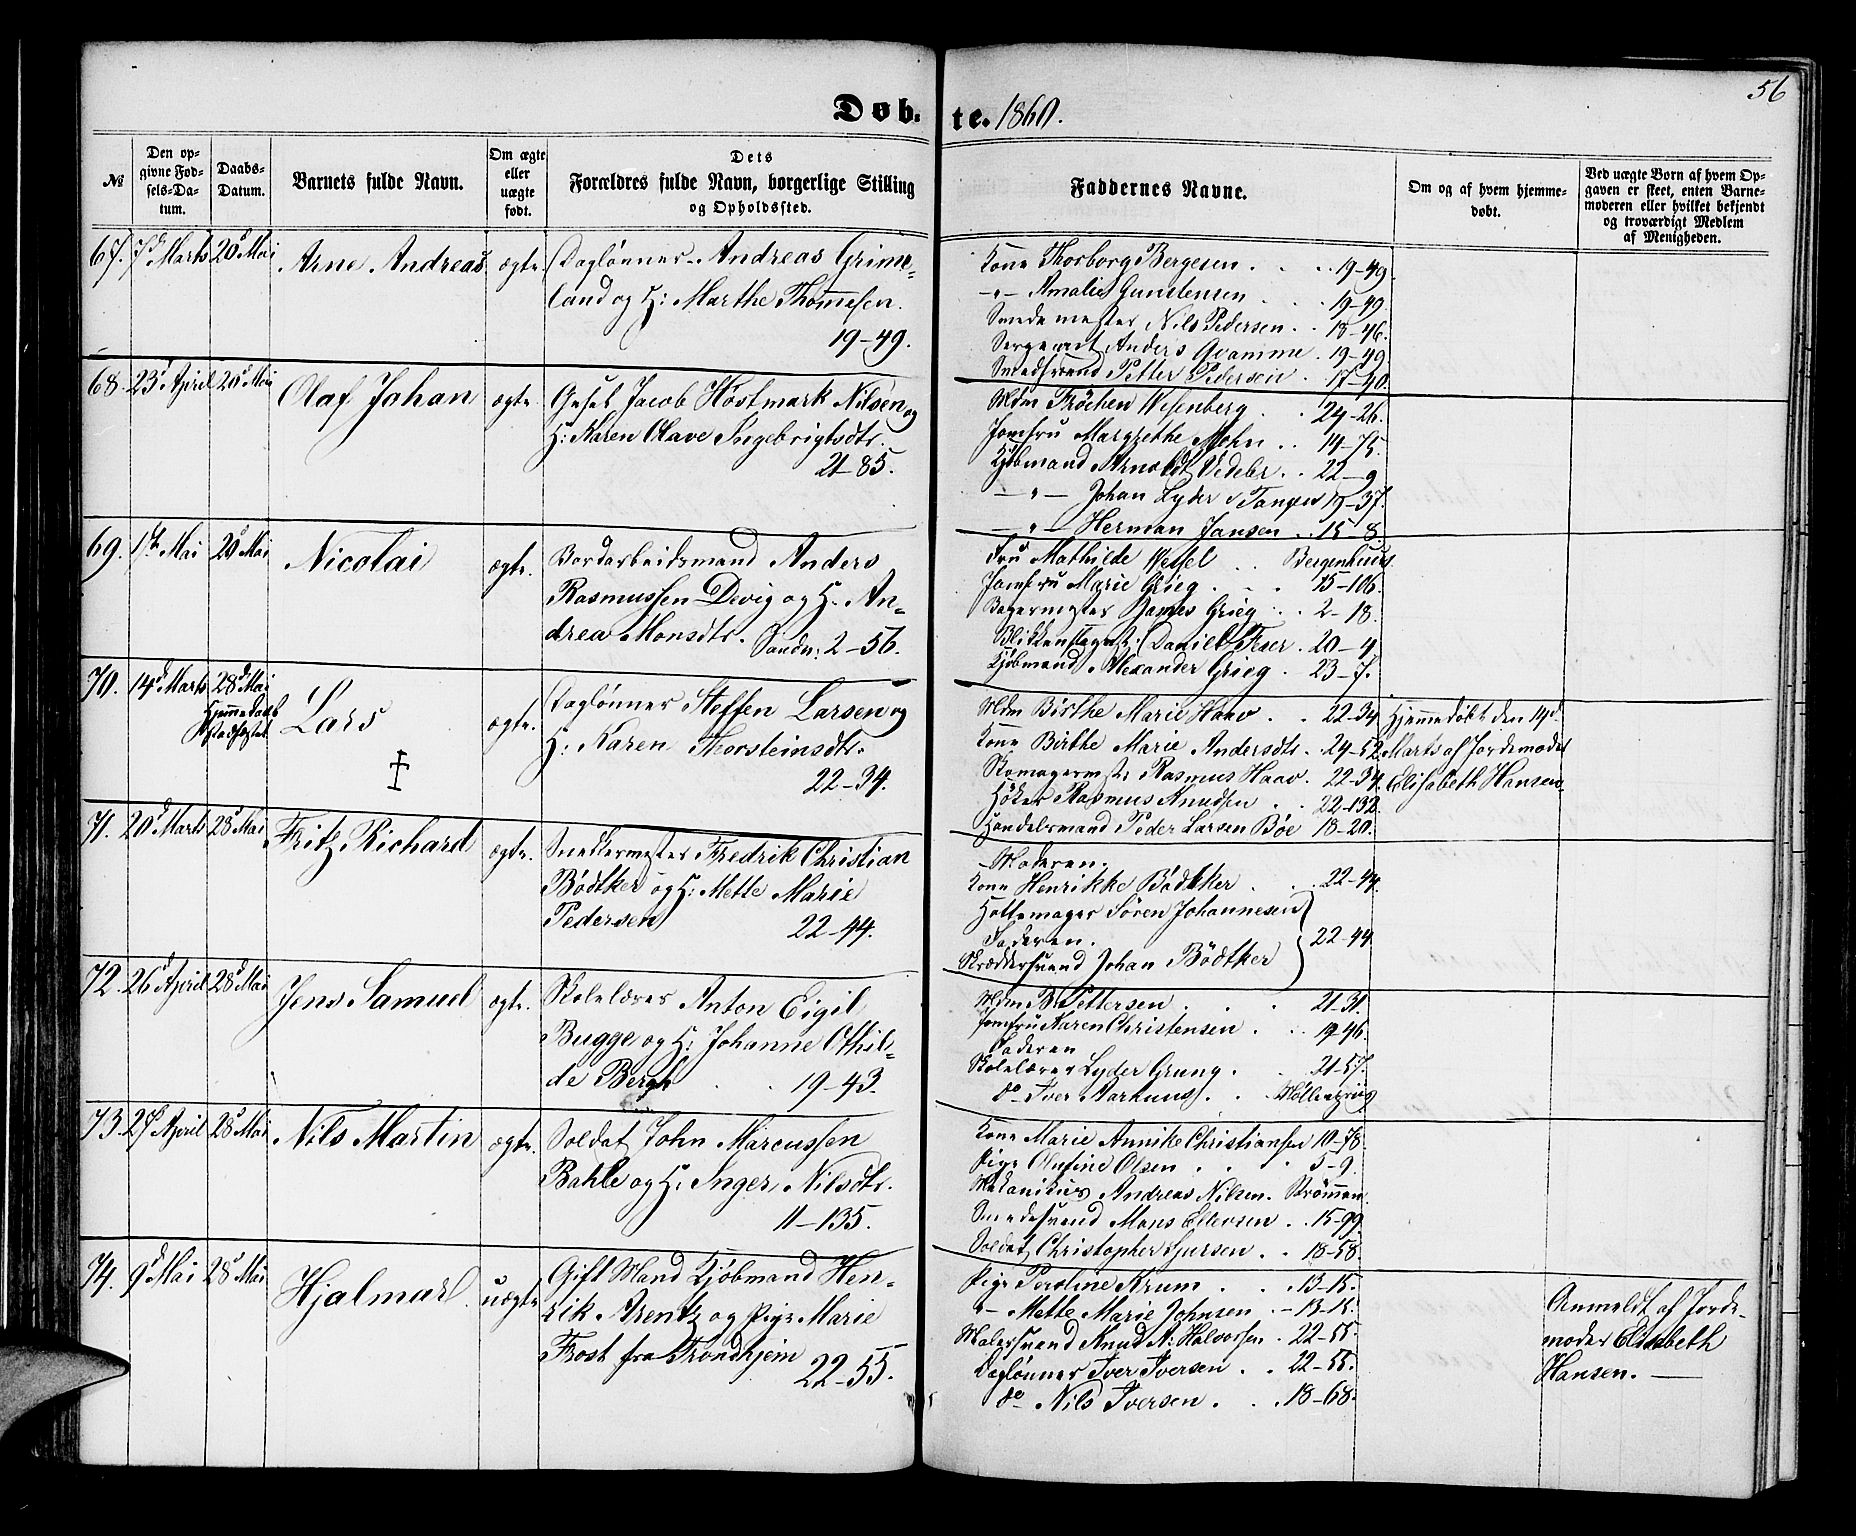 56
Døbte. 1860.
№
Den opgivne Fødsels-Datum.
Daabs-Datum.
Barnets fulde Navn.
Om ægte eller uægte født.
Dets Forældres fulde Navn, borgerlige Stilling og Opholdssted.
Faddernes Navne.
Om og af hvem hjemmedøbt.
Ved uægte Børn af hvem Opgaven er skeet, enten Barnemoderen eller hvilket bekjendt og troværdigt Medlem af Menigheden.
67. 7d Marts 20d Mai Arne Andreas ægte. Daglønner Andreas Grime-
land og H: Marthe Thommesen.
19-49.
Kone Thorborg Bergesen . . . 19-49.
-"- Amalie Gunstensen . . . 19-49.
Smedemester Nils Pedersen . . 18-46.
Sergeant Anders Qvamme . 19-49.
Smedsvend Petter Pedersen . 17-40.
68. 23d April 20d Mai Olaf Johan ægte. Gesel Jacob Høstmark Nilsen og
H: Karen Olave Ingebrigtsdtr.
21-85.
Mdm Tröchen Wesenberg . . 24-26.
Jomfru Margrethe Mohn . . 14-75.
Kjøbmand Arnoldt Vedeler . . 22-9
-"- Johan Lyder v Tangen 19-37.
-"- Herman Jansen . . 15-8.
69. 1ste Mai 20d Mai Nicolai ægte. Bordarbeidsmand Anders
Rasmussen Devig og H: An-
drea Monsdtr. Sandv: 2-56.
Fru Mathilde Wessel . . Bergenhuus
Jomfru Marie Grieg . . . 15-106.
Bagermester James Grieg . . 2-18.
Blikkenslagerst: Daniel Feser . 20-4
Kjøbmand Alexander Grieg . 23-7.
70. 14d Marts 28d Mai
Hjemmedaab
stadfæstet
Lars ægte. Daglønner Steffen Larsen og
H: Karen Thorsteinsdtr.
22-34.
Mdm Birthe Marie Haav . . 22-34
Kone Birthe Marie Andersdtr . 24-52
Skomagermst: Rasmus Haav . 22-34.
Höker Rasmus Knudsen . . 22-132.
Handelsmand Peder Larsen Bøe 18-20.
Hjemmedøbt den 14d
Marts af Jordemoder
Elisabeth Hansen.
71. 20d Marts 28d Mai Fritz Richard ægte. Snedkermester Fredrik Christian
Bödtker og H: Mette Marie
Pedersen 22-44.
Moderen.
Kone Henrikke Bödtker . . . 22-44.
Hattemager Sören Johannesen
Faderen.
Skræddersvend Johan Bödtker
22-44
72. 26d April 28d Mai Jens Samuel ægte. Skolelærer Anton Eigil
Bugge og H: Johanne Othil-
de Bergh . . 19-43.
Mdm B Pettersen . . 21-31.
Jomfru Karen Christensen . . 19-46.
Faderen
Skolelærer Lyder Grung . . 21-57.
do Iver Aarhuus . . Møllenpriis
73. 27d April 28d Mai Nils Martin ægte. Soldat John Marcussen
Bahle og H: Inger Nilsdtr.
11-135.
Kone Marie Annike Christiansen 10-78.
Pige Olufine Olsen . . . 5-9.
Mekanikus Andreas Nilsen. Strömmen.
Smedesvend Mons Ellersen . . 15-99.
Soldat Christopher Sjursen . . 18-58.
74. 9d Mai 28d Mai Hjalmar uægte Gift Mand Kjøbmand Hen-
rik Arentz og Pige Marie
Frost fra Trondhjem 22-55.
Pige Peroline Krum . . . 13-15.
"- Mette Marie Johnsen . - 13-15.
Malersvend Knud N: Halvorsen . 22-55.
Daglønner Iver Iversen . . 22-55.
do Nils Iversen . . . 18-68.
Anmeldt af Jorde-
moder Elisabeth
Hansen.